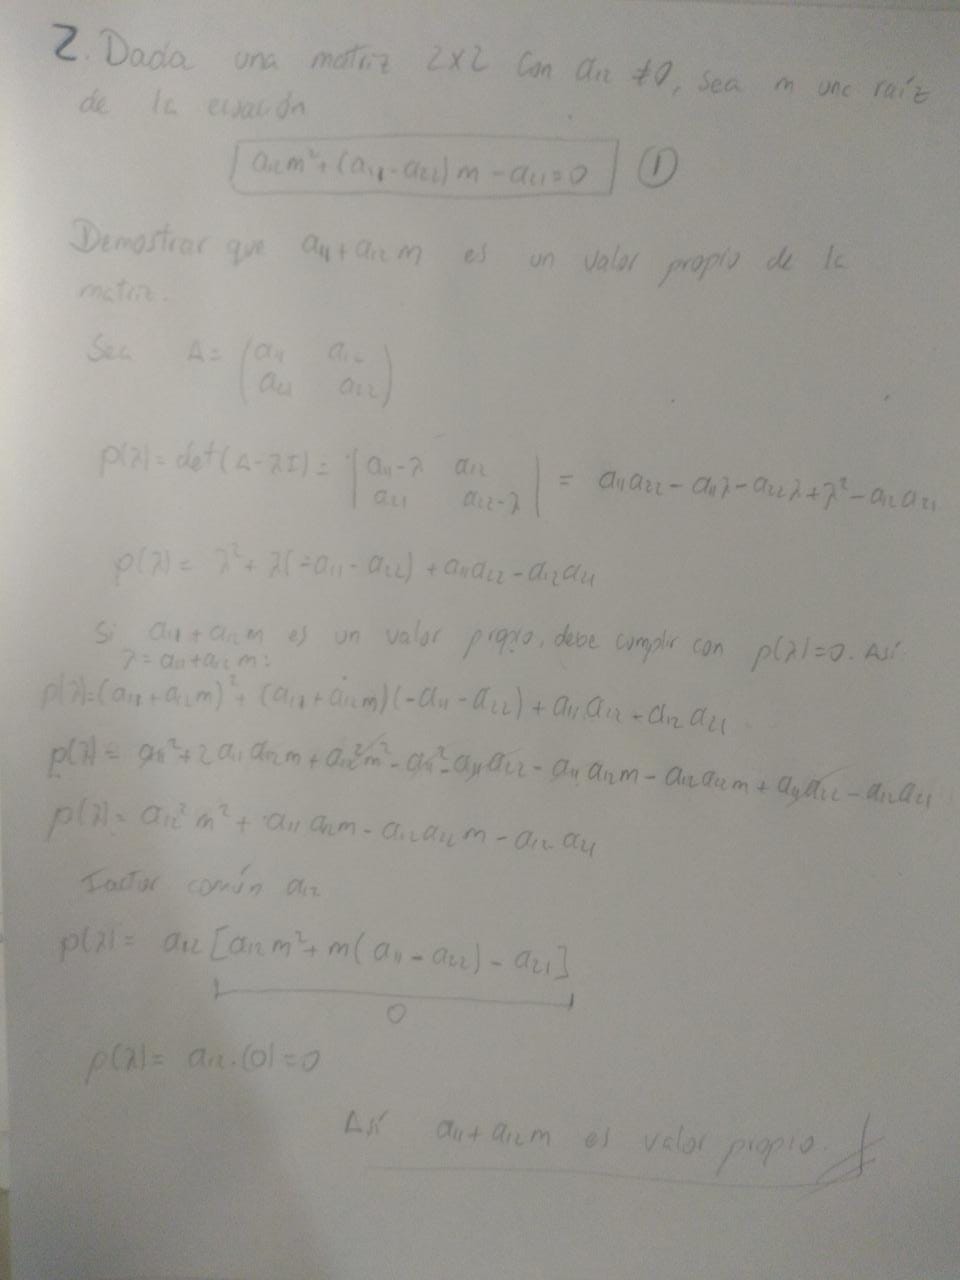 2. Dada una matriz 2x2 con a₁₂ ≠ 0, sea m una raíz
de la ecuación
a₁₂m² + (a₁₁ - a₂₂) m - a₂₁ = 0 ①
Demostrar que a₁₁ + a₁₂ m es un valor propio de la
matriz.
Sea A = (a₁₁ a₁₂
a₂₁ a₂₂)
p(λ) = det(A - λI) = |a₁₁-λ a₁₂
a₂₁ a₂₂-λ| = a₁₁a₂₂ - a₁₁λ - a₂₂λ + λ² - a₁₂a₂₁
p(λ) = λ² + λ(-a₁₁ - a₂₂) + a₁₁a₂₂ - a₁₂a₂₁
Si a₁₁ + a₁₂m es un valor propio, debe cumplir con p(λ)=0. Así
λ = a₁₁ + a₁₂m:
p(λ) = (a₁₁ + a₁₂m)² + (a₁₁ + a₁₂m)(-a₁₁ - a₂₂) + a₁₁a₂₂ - a₁₂a₂₁
p(λ) = a₁₁² + 2a₁₁a₁₂m + a₁₂²m² - a₁₁² - a₁₁a₂₂ - a₁₁a₁₂m - a₁₂a₂₂m + a₁₁a₂₂ - a₁₂a₂₁
p(λ) = a₁₂²m² + a₁₁a₁₂m - a₁₂a₂₂m - a₁₂a₂₁
Factor común a₁₂
p(λ) = a₁₂[a₁₂m² + m(a₁₁ - a₂₂) - a₂₁]
0
p(λ) = a₁₂.(0) = 0
Así a₁₁ + a₁₂m es valor propio.